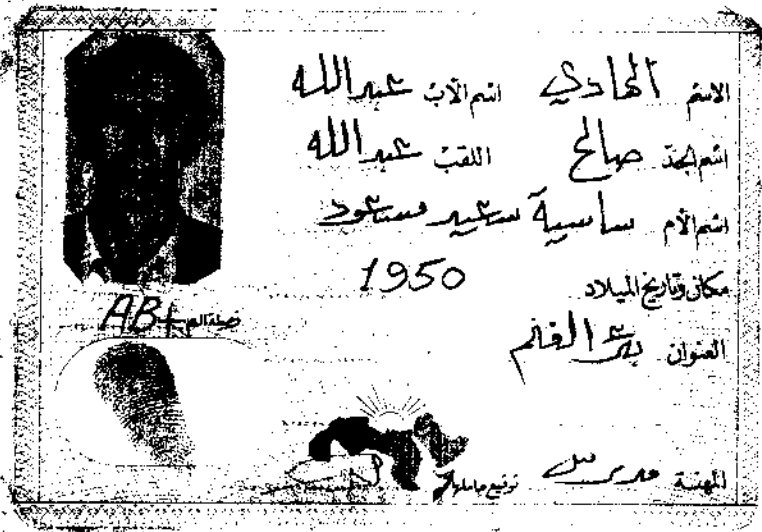 الاسم الهادي اسم الأب عبدالله
اسم الجد صالح اللقب عبدالله
اسم الأم ساسية سعيد مسعود
مكان وتاريخ الميلاد 1950
فصيلة الدم AB+
العنوان بئر الغنم
المهنة مدرس توقيع حاملها